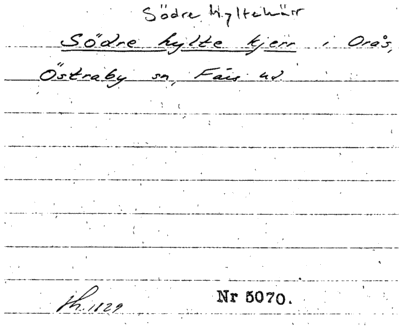 Södre hyltekärr
Södre hylte kjerr i Orås,
Östraby sn, Färs hd
Nr 5070.